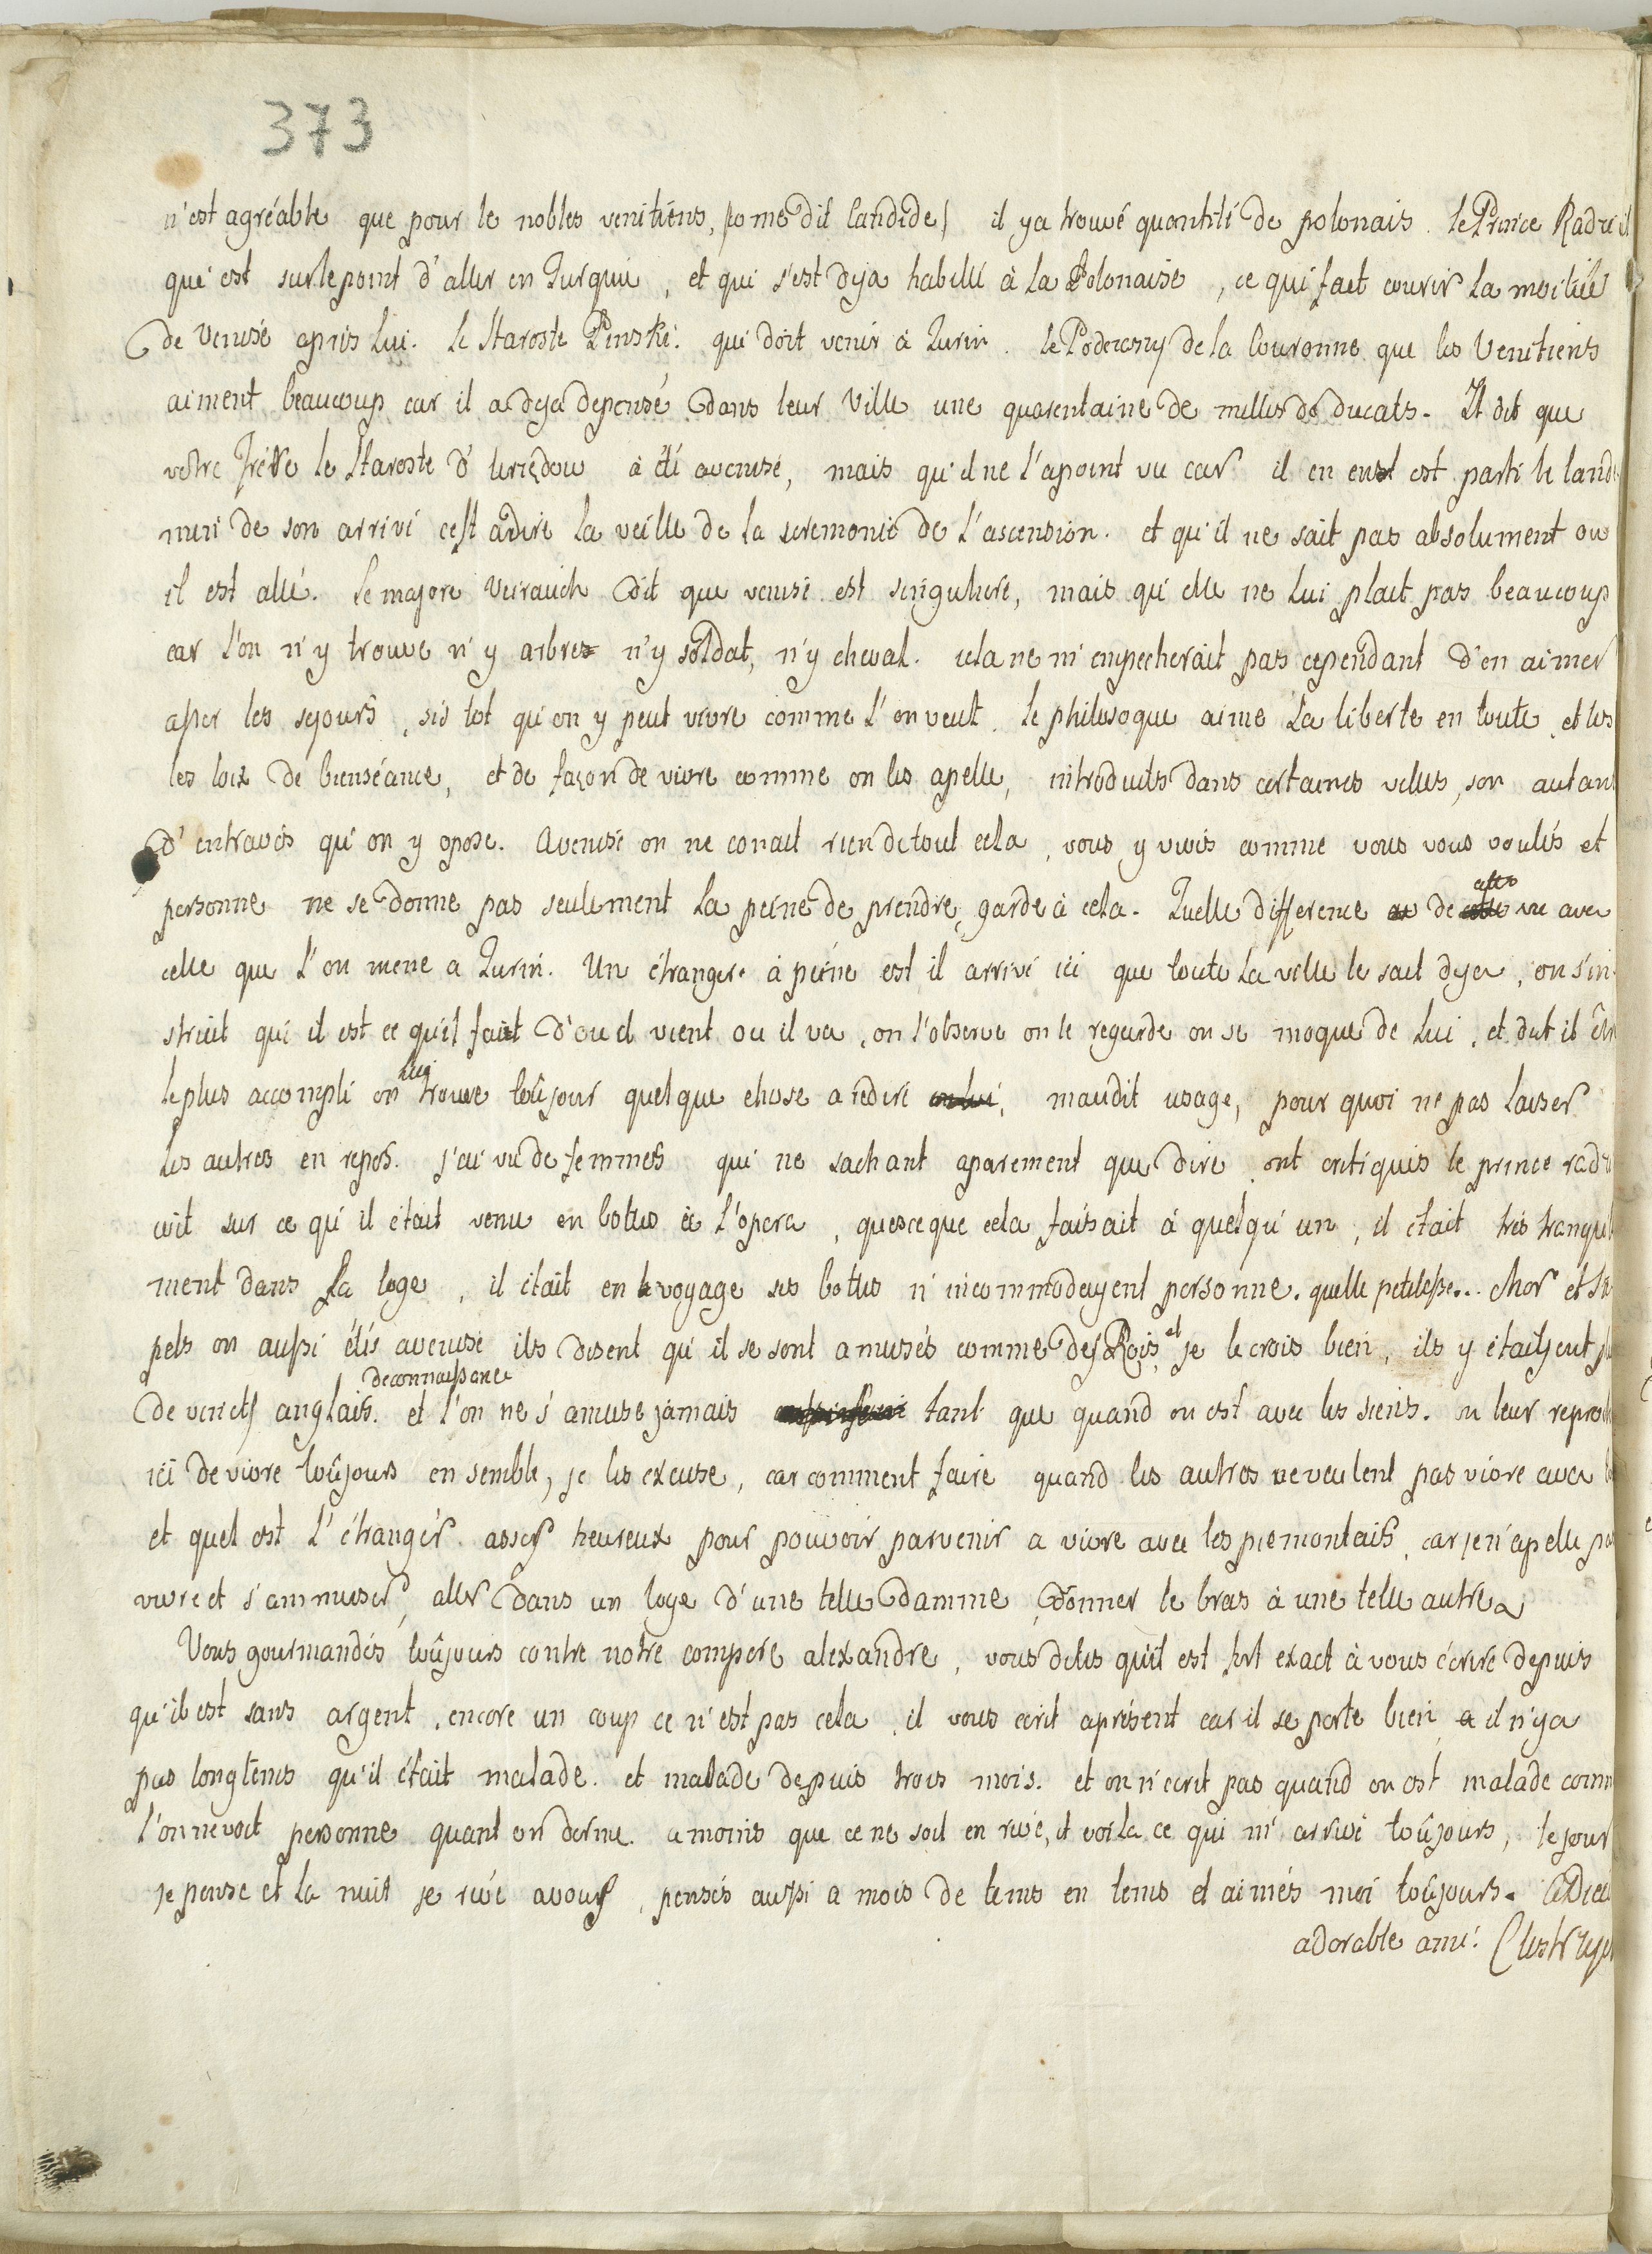 373
n'est agréable que pour le nobles venitiens, (come dit Candide) il ya trouvé quantité de polonais. le Prince Radzi
qui est sur le point d'aller en Turquie, et qui s'est deja habillé à la Polonaise, ce qui fait courir la moitiée
de Venise aprés lui. le Staroste Pinski. qui doit venir à Turin. le Podczaszy de la Couronne que les Venitiens
aiment beaucoup car il a deja depensé dans leur Ville une quarentaine de milles de ducats. Il dit que
votre Frére le Staroste d' a été avenise, mais qu'il ne l'apoint vu car il en est parti le lande
main de son arrivé c'est adire la veille de la seremonie de l'ascension. et qu'il ne sait pas absolument ou
il est allé. le majore Veirauch dit que venise est singuliere, mais qu'elle ne lui plait pas beaucoup
car l'on n'y trouve n'y arbre n'y soldat, n'y cheval. cela ne m'empecherait pas cependant d'en aimer
aser les sejours, sis tot qu'on y peut vivre comme l'on veut. le philosoque aime la liberte en toute, et les
les loix de bienséance, et de façon de vivre comme on les apelle, introduits dans certaines villes, son autant
d'entraves qu'on y opose. avenise on ne conait rien de tout cela, vous y vivés comme vous vous voulés et
personne ne se donne pas seulement la peine de prendre garde à cela. Quelle difference de cette vie avec
celle que l'on mene a Turin. Un étrangere à peine est il arrivé ici que toute la ville le sait deja, on s'in
struit qui il est ce qu'il fait d'ou il vient ou il va, on l'observe on le regarde on se moque de lui, et dut il être
le plus accompli on lui trouve toûjour quelque chose a redire, maudit usage, pour quoi ne pas laiser
les autres en repos. j'ai vu de femmes qui ne sachant aparement que dire, ont critiqués le prince radzi
wil sur ce qu'il était venu en bottes à l'opera, quesceque cela faisait à quelqu'un, il était très tranquile
ment dans sa loge, il était en voyage ses bottes n'incommodayent personne. quelle petitesse... Mor et
pels on aussi étés avenise ils disent qu'il se sont amusés comme des Rois, et je le crois bien, ils y étaitsent
de vinct anglais. deconnaissance et l'on ne s'amuse jamais tant que quand on est avec les siens. on leur reproche
ici de vivre toûjours ensemble, je les excuse, car comment faire quand les autres ne veulent pas vivre avec
et quel est l'étranger assez heureux pour pouvoir parvenir a vivre avec les piemontais, car je n'apelle pas
vivre et s'ammuser, aller dans un loge d'une telle damme, donner le bras à une telle autre
Vous gourmandés toûjours contre notre compere alexandre, vous dites qu'il est fort exact à vous écrire depuis
qu'il est sans argent, encore un coup ce n'est pas cela, il vous ecrit aprésent car il se porte bien, il n'ya
pas longtems qu'il était malade. et malade depuis trois mois. et on n'ecrit pas quand on est malade comme
l'on ne voit personne quant on dorme. amoins que ce ne soit en reve, et voila ce qui m'arrive toûjours, le jour
je pense et la nuit je reve avous, pensés aussi a mois de tems en tems et aimés moi toûjours. Adieu
adorable ami.